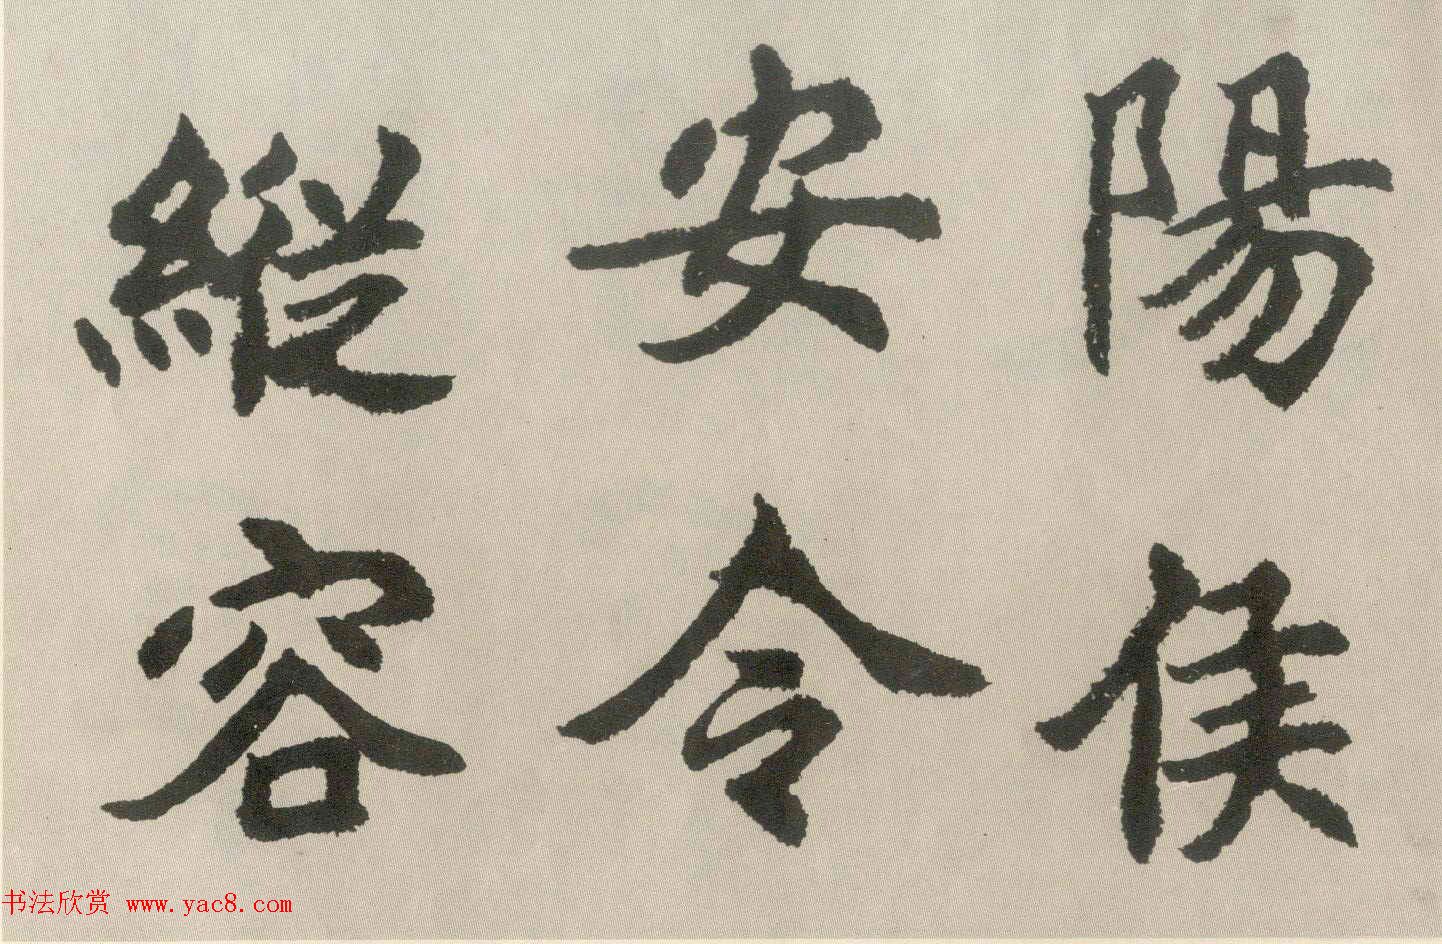 陽侯
安令
縱容
书法欣赏 www.yac8.com